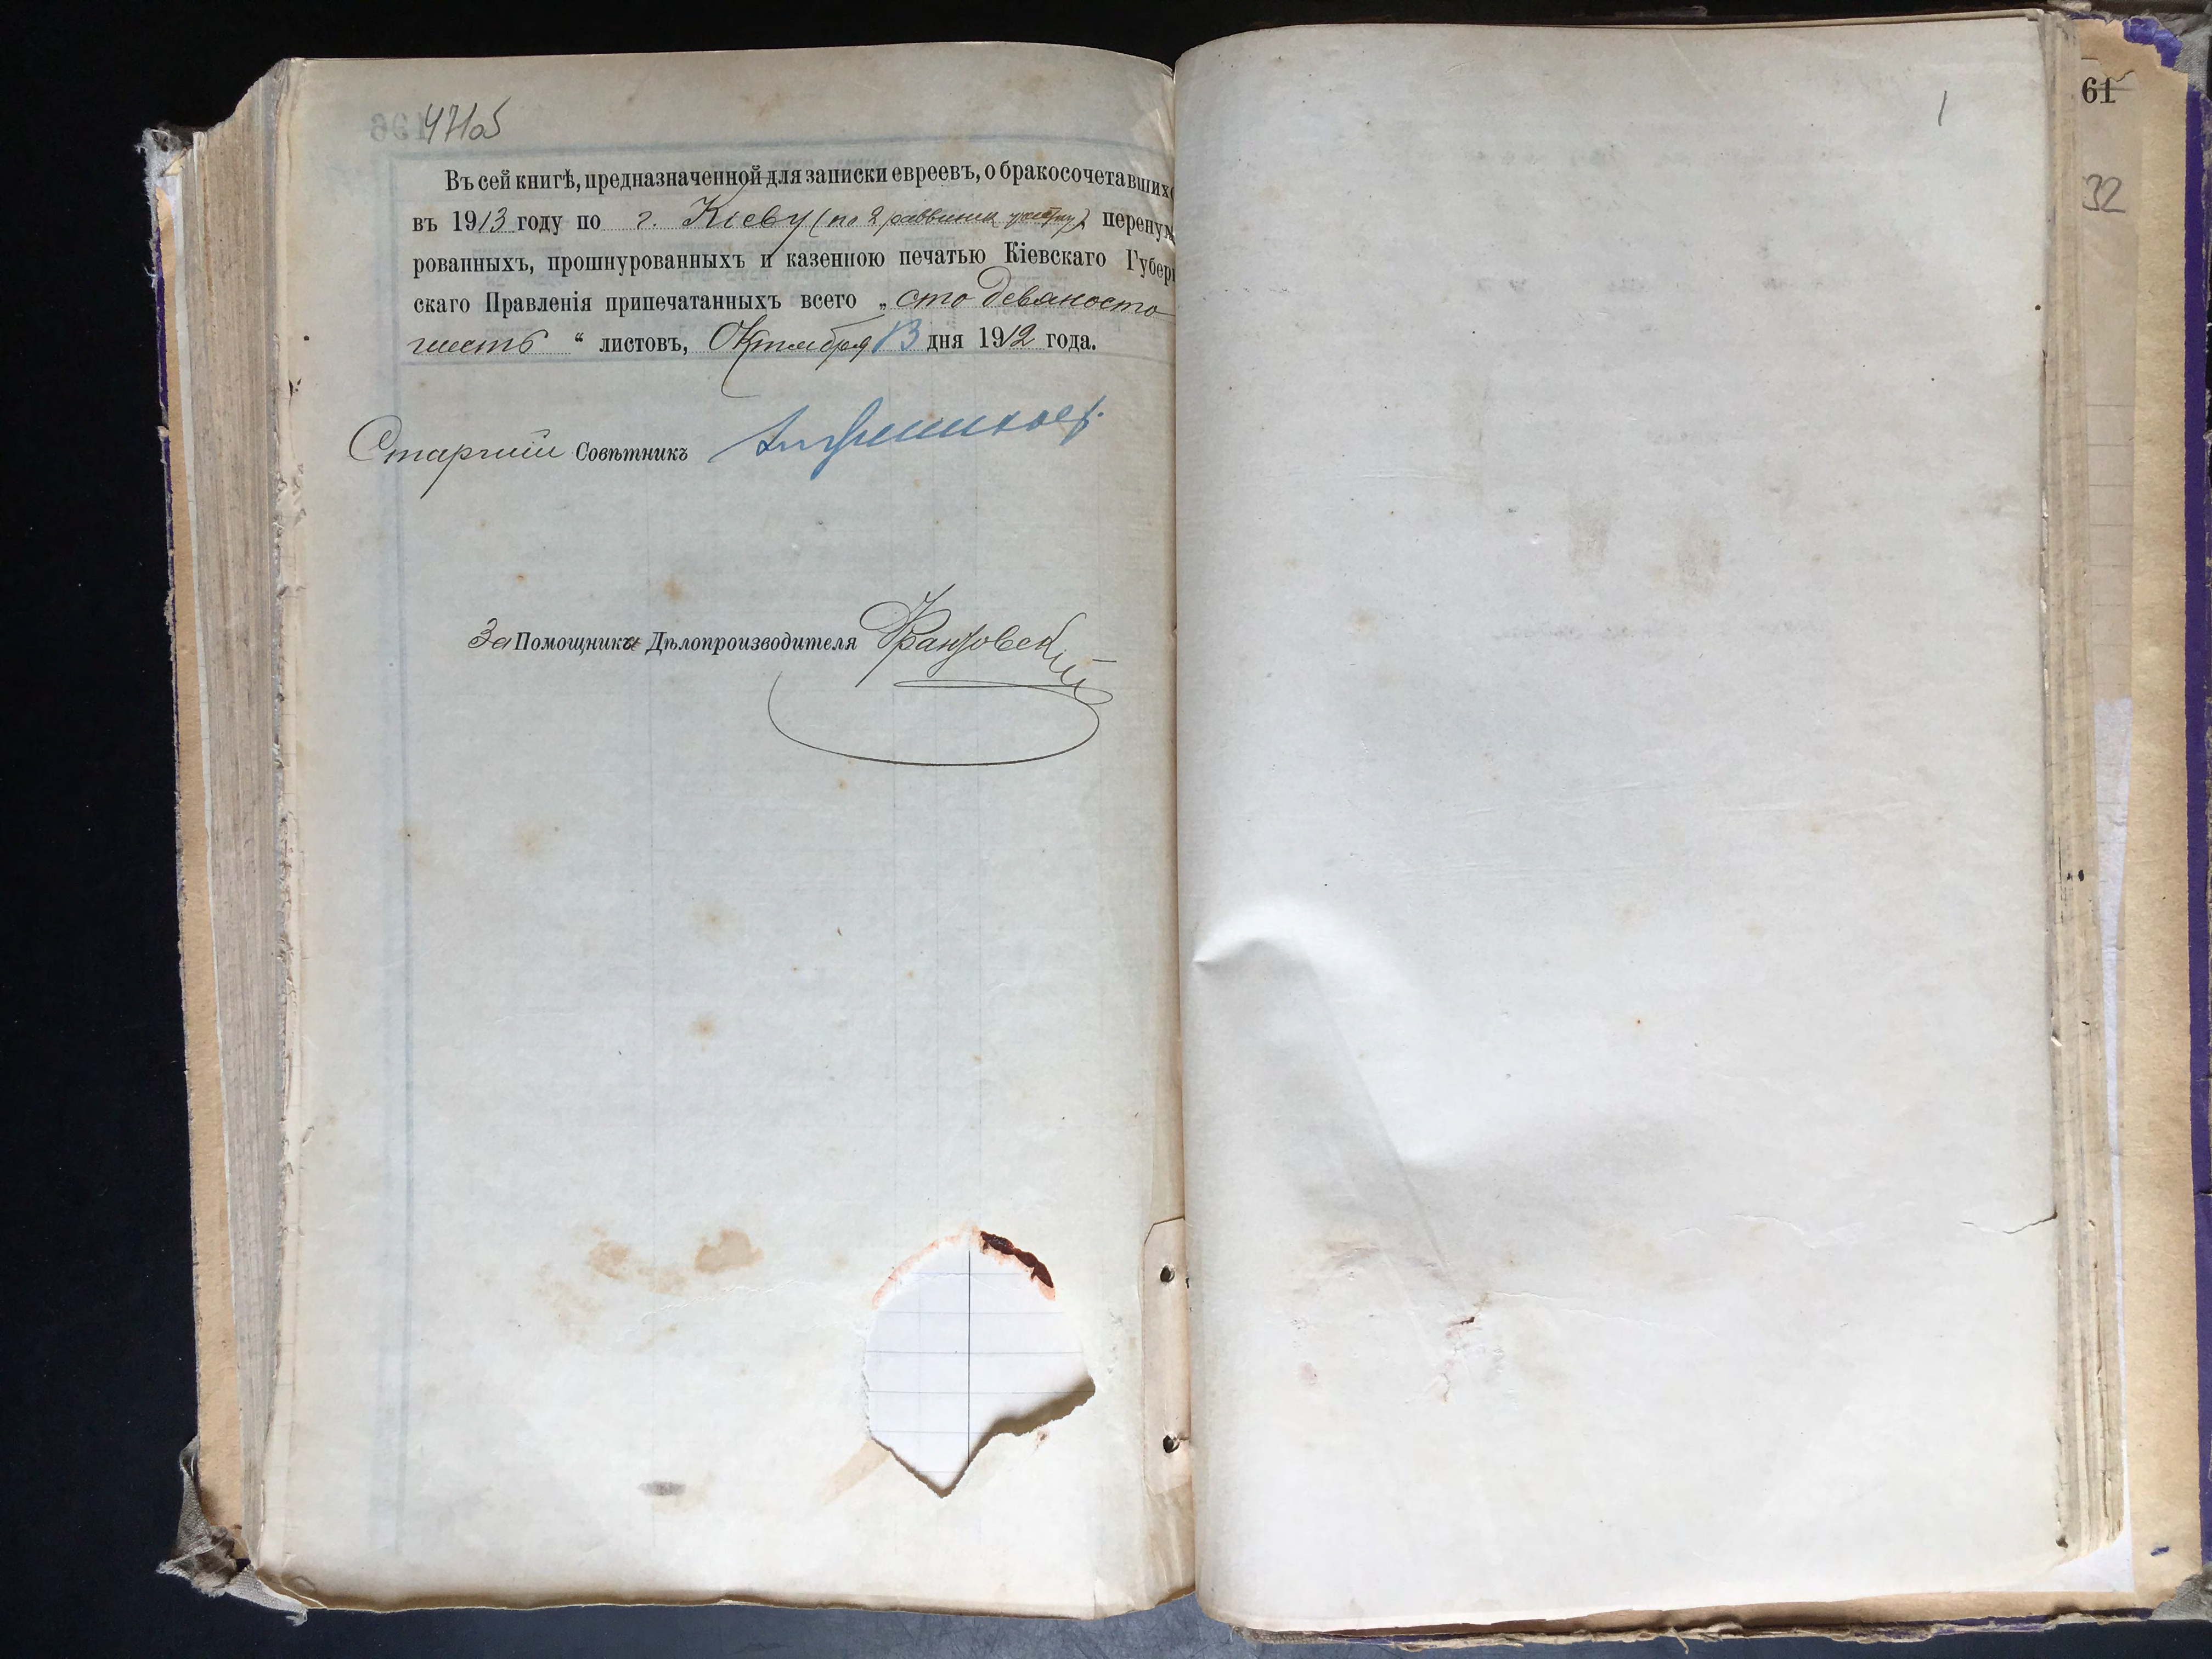 471об
196
Въ сей книгѣ, предназначенной для записки евреевъ, о бракосочетавшихс
въ 1913 году по г. Кіеву (по 2 раввинск. участку) перенум
рованныхъ, прошнурованныхъ и казенною печатью Кіевскаго Губерн
скаго Правленія припечатанныхъ всего „сто девяносто
шесть“ листовъ, Октября 13 дня 1912 года.
Старшій Совѣтникъ
За Помощника Дѣлопроизводителя
1
61
32